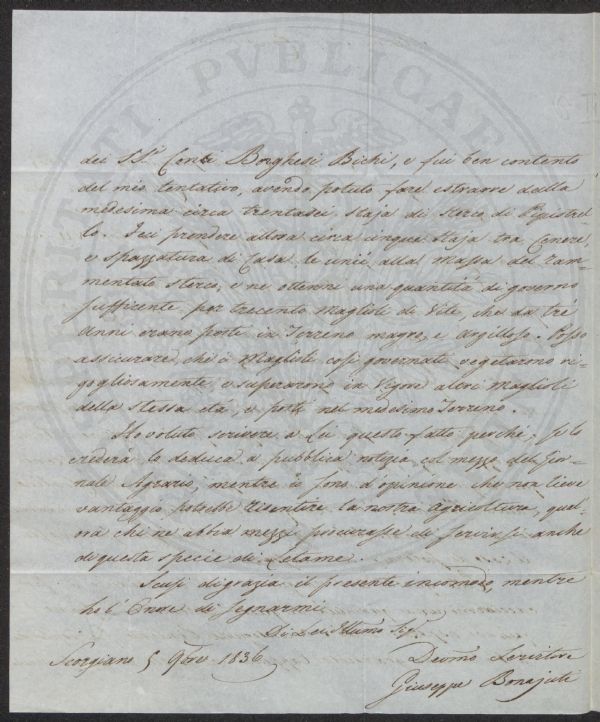 PROSPERITATI PVBLICAE
dei SS.ri Conti Borghesi Bichi, e fui ben contento
del mio tentativo, avendo potuto fare estrarre dalla
medesima circa trentasei staja di sterco di Pipistrel-
lo. Feci prendere allora circa cinque staja tra Cenere,
e spazzatura di Casa le unii alla massa del ram-
mentato sterco, e ne ottenni una quantità di governo
sufficente per trecento Maglioli di Vite, che da tre
Anni erano posti in Terreno magro, e Argilloso. Posso
assicurare, che i Maglioli così governati vegetarono ri-
gogliosamente, e superarono in Vigore altri Maglioli
della stessa età, e posti nel medesimo Terreno.
Ho voluto scrivere a Lei questo fatto perchè, se lo
crederà lo deduca a pubblica notizia col mezzo del Gior-
nale Agrario, mentre io sono d'opinione che non lieve
vantaggio potrebbe risentire la nostra Agricoltura, qual-
ora chi ne abbia mezzi procurasse di servirsi anche
di questa specie di Letame.
Scusi di grazia il presente incomodo, mentre
ho l'Onore di segnarmi
Di Lei Illumo Sig.re
Scorgiano 5 9bre 1836
Devmo Servitore
Giuseppe Bonajuti